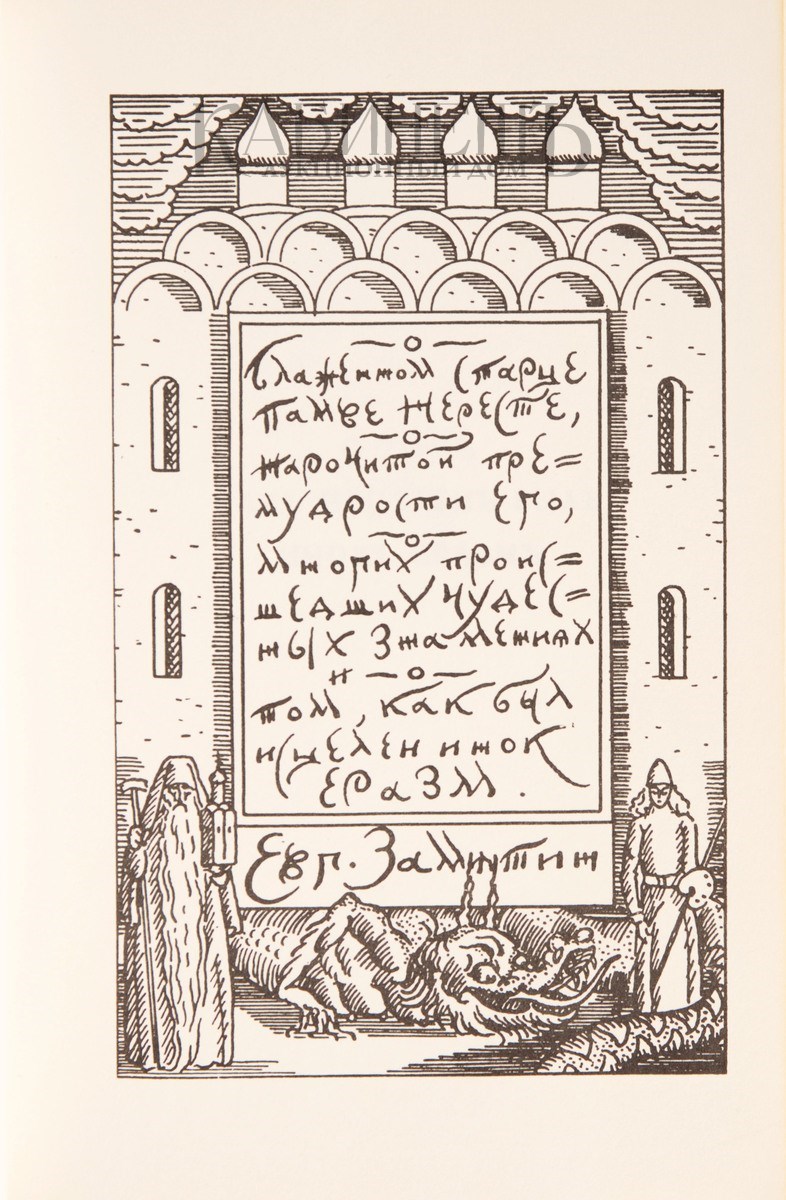 КАБИНЕТЪ
АУКЦИОННЫЙ ДОМ
О
блаженном старце
Памве Нересте,
о
нарочитой пре=
мудрости его,
о
многих проис=
шедших чудес=
ных знамениях
и о
том, как был
исцелен инок
Еразм.
Евг. Замятин